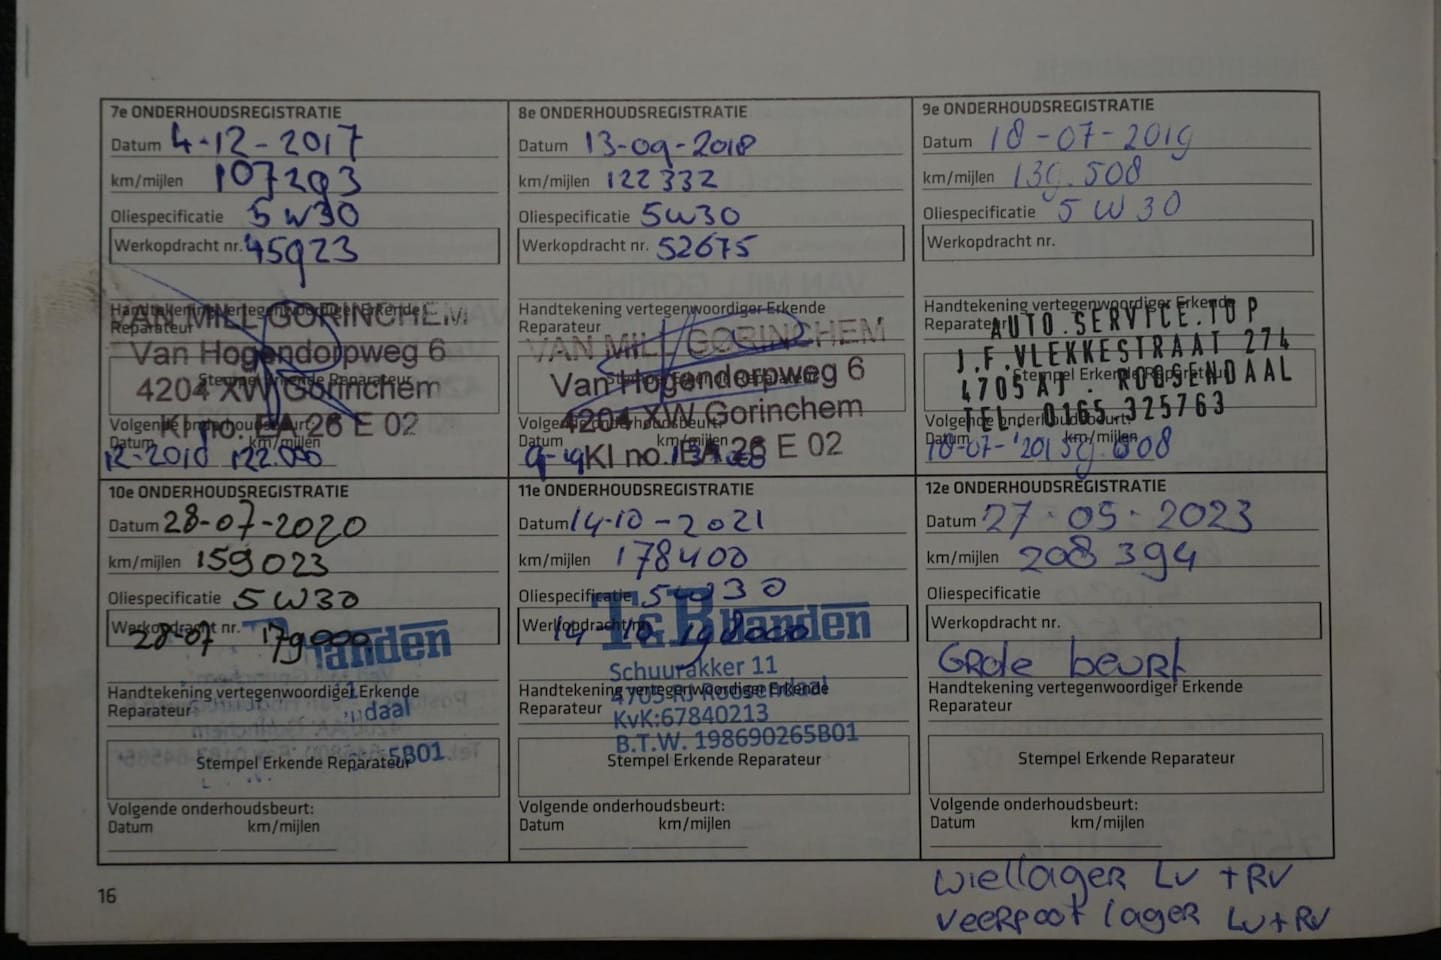 7e ONDERHOUDSREGISTRATIE
Datum 4-12-2017
km/mijlen 107293
Oliespecificatie 5W30
Werkopdracht nr. 45923
Handtekening vertegenwoordiger Erkende
Reparateur
VAN MILL GORINCHEM
Van Hogendorpweg 6
4204 XW Gorinchem
Stempel Erkende Reparateur
KI no. EA 26 E 02
Volgende onderhoudsbeurt:
Datum km/mijlen
122.000
8e ONDERHOUDSREGISTRATIE
Datum 13-09-2018
km/mijlen 122332
Oliespecificatie 5W30
Werkopdracht nr. 52675
Handtekening vertegenwoordiger Erkende
Reparateur
VAN MILL GORINCHEM
Van Hogendorpweg 6
4204 XW Gorinchem
Volgende onderhoudsbeurt:
Datum km/mijlen
9-19
KI no. EA 26 E 02
9e ONDERHOUDSREGISTRATIE
Datum 18-07-2019
km/mijlen 139.508
Oliespecificatie 5W30
Werkopdracht nr.
Handtekening vertegenwoordiger Erkende
Reparateur
AUTO.SERVICE.TOP
J.F.VLEKKESTRAAT 274
4705 AJ. ROOSENDAAL
Stempel Erkende Reparateur
TEL. 0165 325763
Volgende onderhoudsbeurt:
Datum km/mijlen
18-07-
10e ONDERHOUDSREGISTRATIE
Datum 28-07-2020
km/mijlen 159023
Oliespecificatie 5W30
Werkopdracht nr.
28-07 179000
anden
Handtekening vertegenwoordiger Erkende
Reparateur
daal
5B01
Stempel Erkende Reparateur
Volgende onderhoudsbeurt:
Datum km/mijlen
11e ONDERHOUDSREGISTRATIE
Datum 14-10-2021
km/mijlen 178400
Oliespecificatie 5W30
Werkopdracht nr.
14-10 198000
T&B Banden
Schuurakker 11
Handtekening vertegenwoordiger Erkende
4705 RJ Roosendaal
Reparateur
KvK:67840213
B.T.W. 198690265B01
Stempel Erkende Reparateur
Volgende onderhoudsbeurt:
Datum km/mijlen
12e ONDERHOUDSREGISTRATIE
Datum 27-05-2023
km/mijlen 208394
Oliespecificatie
Werkopdracht nr.
Grote beurt
Handtekening vertegenwoordiger Erkende
Reparateur
Stempel Erkende Reparateur
Volgende onderhoudsbeurt:
Datum km/mijlen
wiellager LV + RV
veerpoot lager LV + RV
16